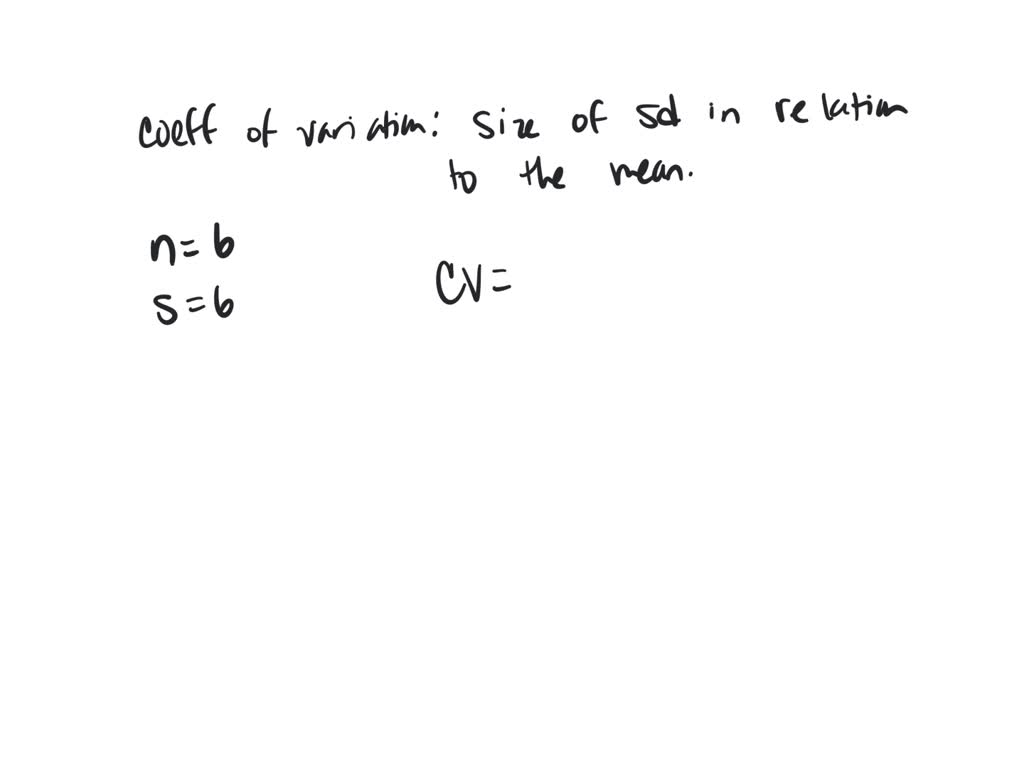 coeff of variation: size of sd in relation
to the mean.
n=6
s=6
CV=